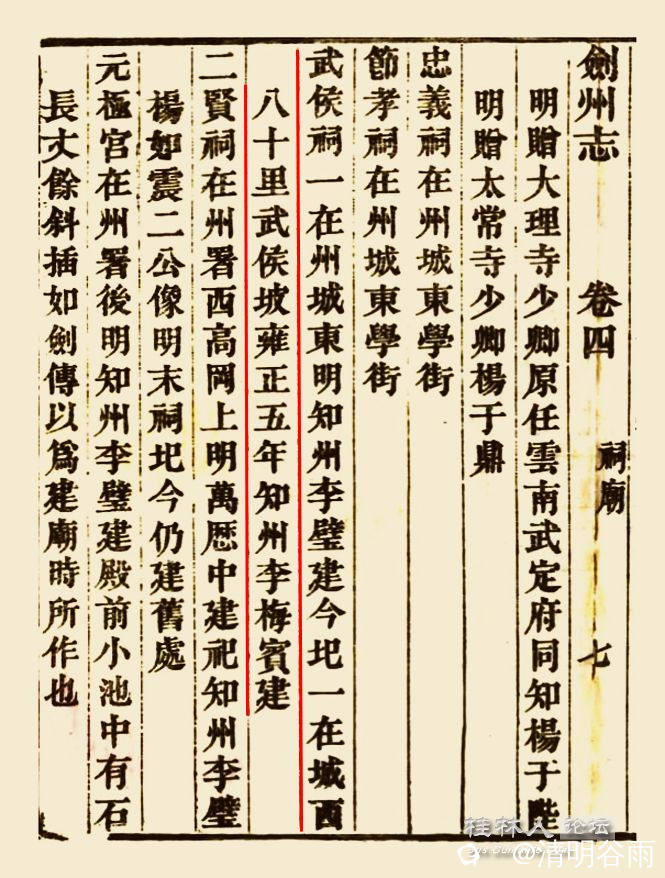 劍州志 卷四 祠廟 七
明贈大理寺少卿原任雲南武定府同知楊于陛
明贈太常寺少卿楊于鼎
忠義祠在州城東學街
節孝祠在州城東學街
武侯祠一在州城東明知州李璧建今圮一在城西
八十里武侯坡雍正五年知州李梅賓建
二賢祠在州署西高岡上明萬厯中建祀知州李璧
楊如震二公像明末祠圮今仍建舊處
元極宮在州署後明知州李璧建殿前小池中有石
長丈餘斜插如劍傳以為建廟時所作也
桂林人论坛
@清明谷雨